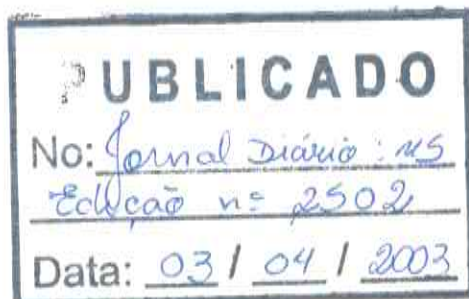 PUBLICADO
No: Jornal Diário: MS
Edição nº 2502
Data: 03 / 04 / 2003